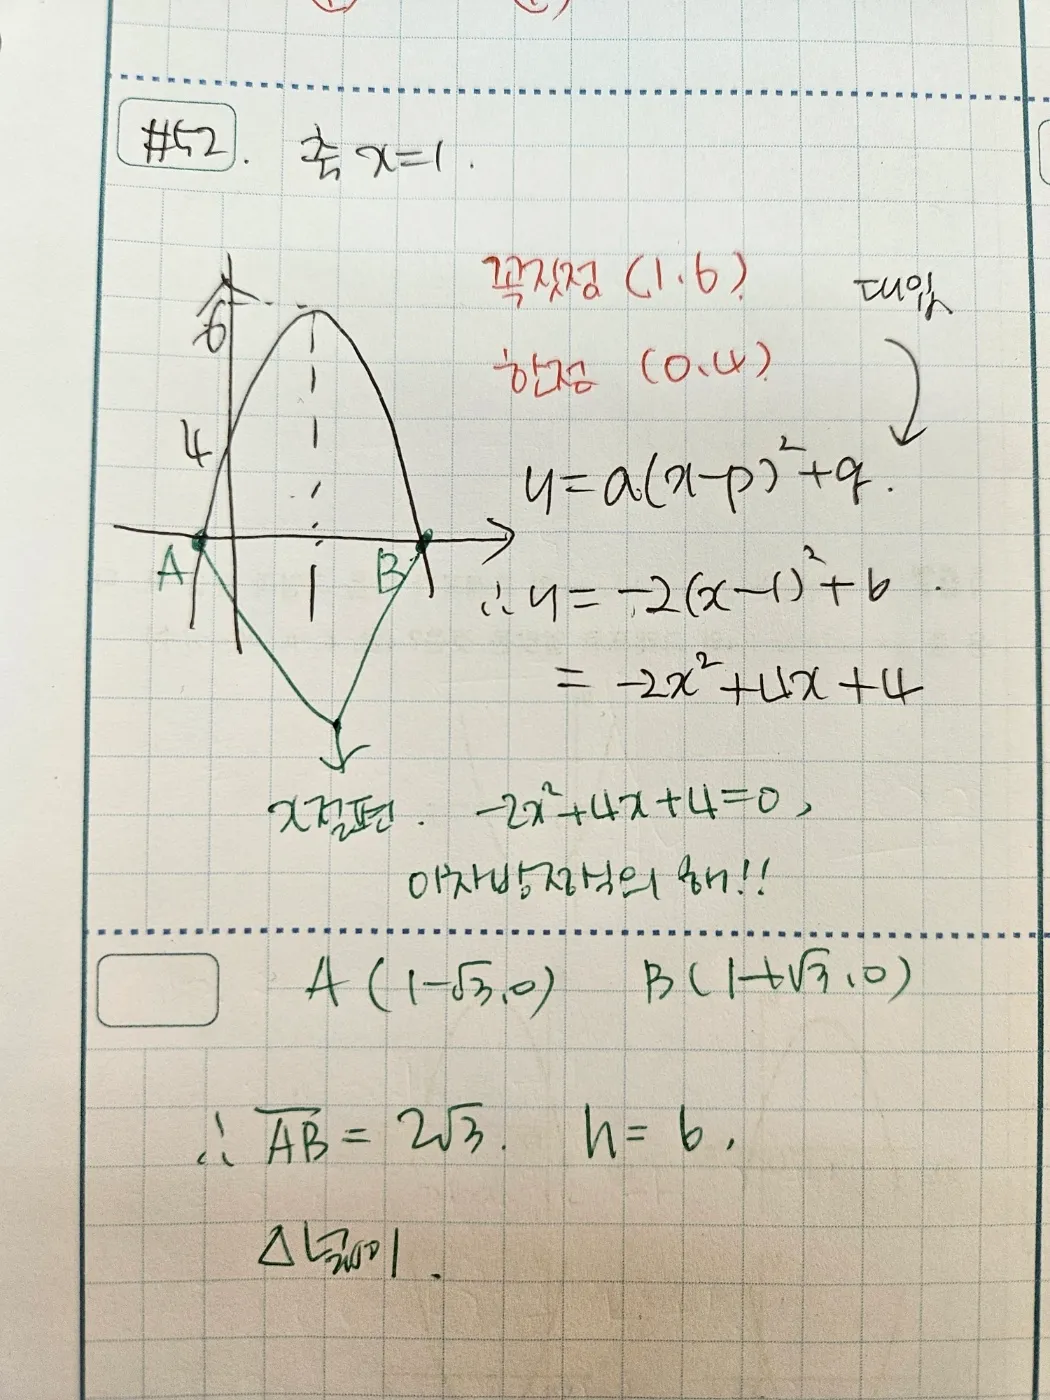 #52. 축 x=1.
꼭짓점 (1.6)
대입
6
한점 (0.4)
4
y=a(x-p)²+q.
A
B
1
∴y=-2(x-1)²+6.
=-2x²+4x+4
x절편. -2x²+4x+4=0,
이차방정식의 해!!
A(1-√3.0) B(1+√3.0)
∴ A̅B̅=2√3. h=6.
△넓이.